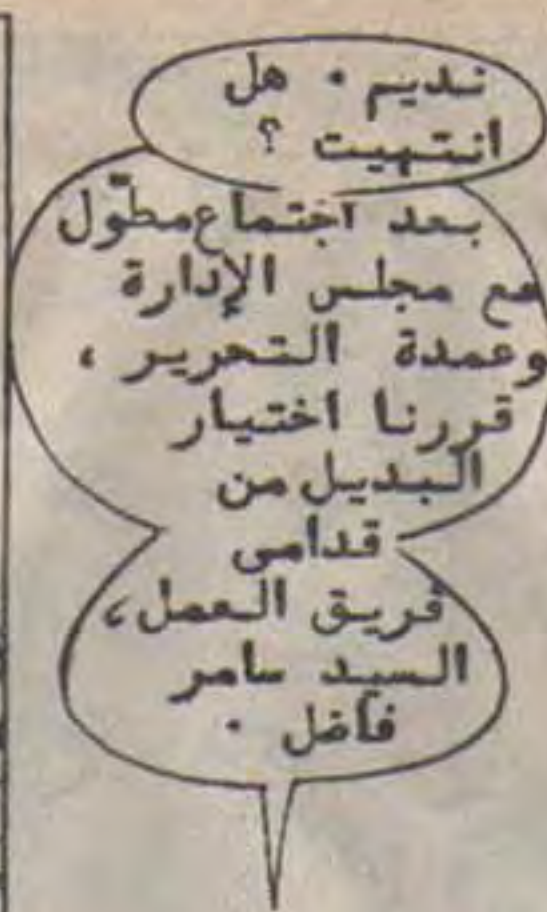 نديم . هل
انتهيت ؟
بعد اجتماع مطوّل
مع مجلس الإدارة
وعمدة التحرير ،
قررنا اختيار
البديل من
قدامى
فريق العمل ،
السيد سامر
فاضل .